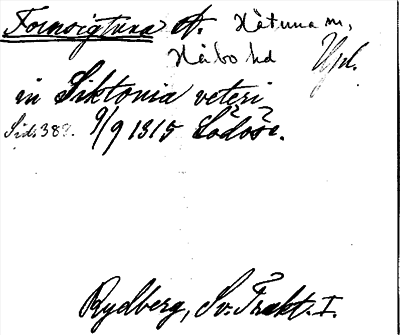 Fornsigtuna A. Håtuna sn,
Håbo hd Upl.
in Siktonia veteri
Sid. 388. 9/9 1315 Lödöse.
Rydberg, Sv. Trakt. I.